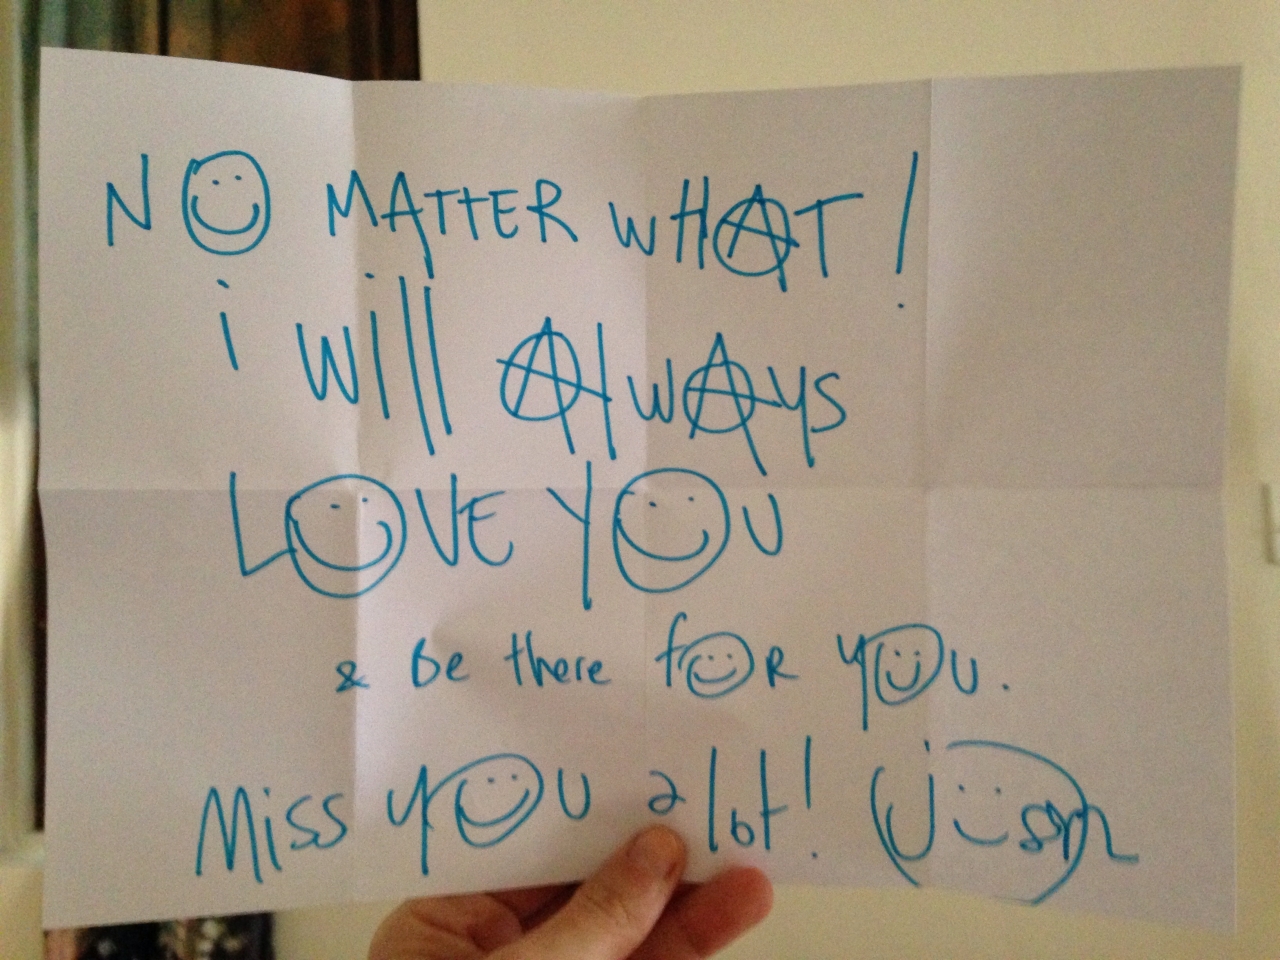 NO MATTER WHAT!
i will AlwAys
LOVE YOU
& Be there foR yOU.
Miss yOU a lot!